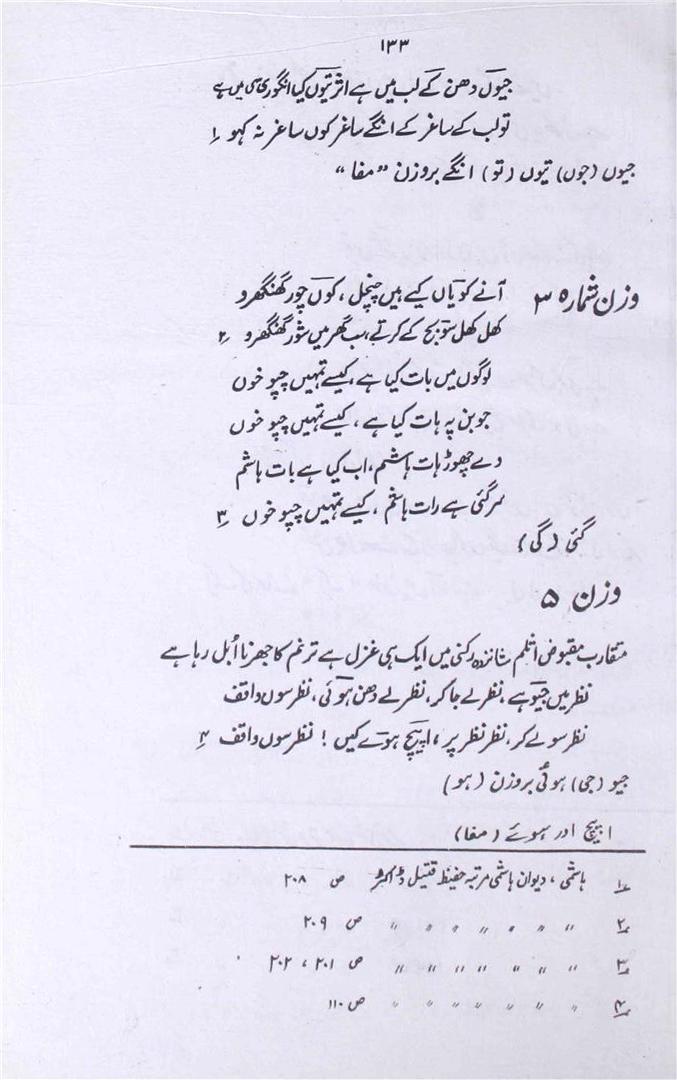 ۱۳۳
جیوں دھن کے لب میں ہے اثر تیوں کیا انگوری سی میں ہے
تو لب کے ساغر کے انگے ساغر کوں ساغر نہ کہو ۱
جیوں (جوں) تیوں (تو) انگے بروزن "مفا"
وزن شمارہ ۳ آنے کو یاں کیے ہیں چنچل، کوں چور گھنگھرو
کھل کھل سو بج کے کرتے سب گھر میں شور گھنگھرو ۲
لوگوں میں بات کیا ہے، کیسے تمہیں چپو خوں
جوبن پہ ہات کیا ہے، کیسے تمہیں چپو خوں
دے چھوڑ ہات ہاشم، اب کیا ہے بات ہاشم
سر گئی ہے رات ہاشم، کیسے تمہیں چپو خوں ۳
گئی (گی)
وزن ۵
متقارب مقبوض اثلم شانزدہ رکنی میں ایک ہی غزل ہے ترنم کا جھرنا اُبل رہا ہے
نظر میں جیو ہے، نظر لے جا کر، نظر لے دھن ہوئی، نظر سوں واقف
نظر سو لے کر، نظر نظر پر، اپیچ ہوے کیں! نظر سوں واقف ۴
جیو (جی) ہوئی بروزن (ہو)
اپیچ اور ہوئے (مفا)
۱ ہاشمی، دیوان ہاشمی مرتبہ حفیظ قتیل ڈاکٹر ص ۲۰۸
۲ " " " " " " " ص ۲۰۹
۳ " " " " " " " ص ۲۰۱، ۲۰۲
۴ " " " " " " " ص ۱۱۰